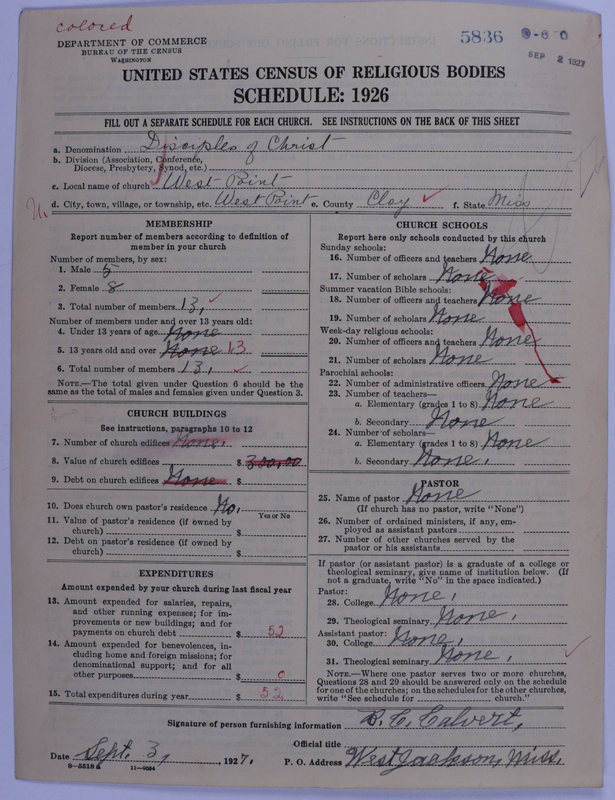 colored
DEPARTMENT OF COMMERCE
BUREAU OF THE CENSUS
WASHINGTON
5836
SEP 2 1927
UNITED STATES CENSUS OF RELIGIOUS BODIES
SCHEDULE: 1926
FILL OUT A SEPARATE SCHEDULE FOR EACH CHURCH. SEE INSTRUCTIONS ON THE BACK OF THIS SHEET
a. Denomination Disciples of Christ
b. Division (Association, Conference,
Diocese, Presbytery, Synod, etc.)
c. Local name of church West Point
d. City, town, village, or township, etc. West Point e. County Clay f. State Miss
MEMBERSHIP
Report number of members according to definition of
member in your church
Number of members, by sex:
1. Male 5
2. Female 8
3. Total number of members 13,
Number of members under and over 13 years old:
4. Under 13 years of age None
5. 13 years old and over None 13
6. Total number of members 13,
NOTE.—The total given under Question 6 should be the
same as the total of males and females given under Question 3.
CHURCH BUILDINGS
See instructions, paragraphs 10 to 12
7. Number of church edifices None,
8. Value of church edifices $ 300,00
9. Debt on church edifices None $
10. Does church own pastor's residence No,
Yes or No
11. Value of pastor's residence (if owned by
church) $
12. Debt on pastor's residence (if owned by
church) $
EXPENDITURES
Amount expended by your church during last fiscal year
13. Amount expended for salaries, repairs,
and other running expenses; for im-
provements or new buildings; and for
payments on church debt $ 52
14. Amount expended for benevolences, in-
cluding home and foreign missions; for
denominational support; and for all
other purposes $ 0
15. Total expenditures during year $ 52
CHURCH SCHOOLS
Report here only schools conducted by this church
Sunday schools:
16. Number of officers and teachers None
17. Number of scholars None
Summer vacation Bible schools:
18. Number of officers and teachers None
19. Number of scholars None
Week-day religious schools:
20. Number of officers and teachers None
21. Number of scholars None
Parochial schools:
22. Number of administrative officers None
23. Number of teachers—
a. Elementary (grades 1 to 8) None
b. Secondary None
24. Number of scholars—
a. Elementary (grades 1 to 8) None
b. Secondary None,
PASTOR
25. Name of pastor None
(If church has no pastor, write "None")
26. Number of ordained ministers, if any, em-
ployed as assistant pastors
27. Number of other churches served by the
pastor or his assistants
If pastor (or assistant pastor) is a graduate of a college or
theological seminary, give name of institution below. (If
not a graduate, write "No" in the space indicated.)
Pastor:
28. College None,
29. Theological seminary None,
Assistant pastor:
30. College None,
31. Theological seminary None,
NOTE.—Where one pastor serves two or more churches,
Questions 28 and 29 should be answered only on the schedule
for one of the churches; on the schedules for the other churches,
write "See schedule for church."
Signature of person furnishing information B. C. Calvert,
Official title
Date Sept. 3, 1927, P. O. Address West Jackson, Miss.
8-5518a 11-9054